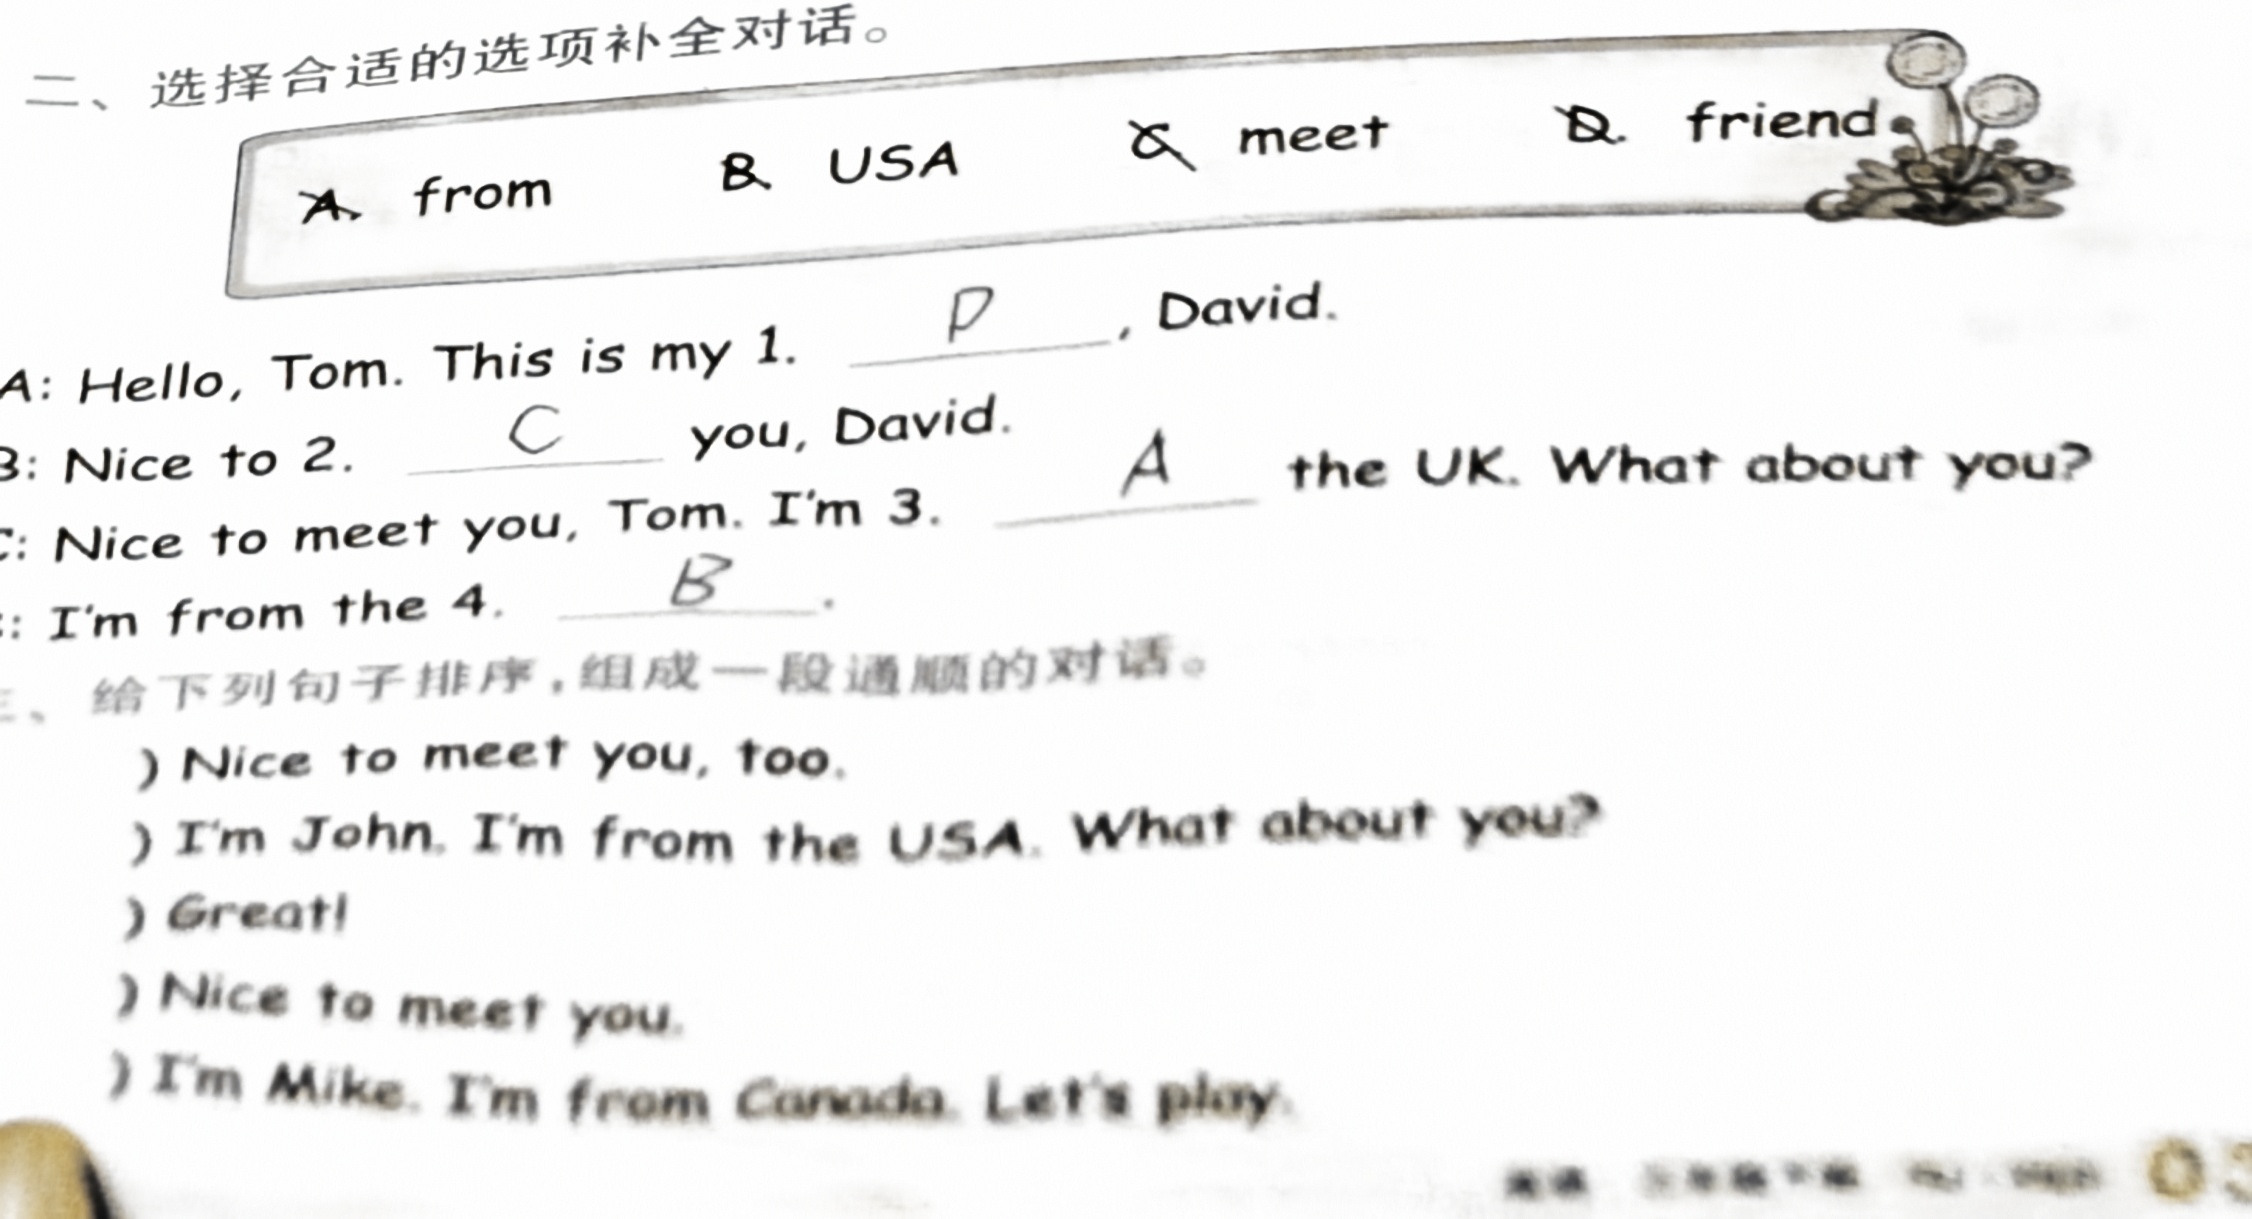 二、选择合适的选项补全对话。
A. from B. USA C. meet D. friend
A: Hello, Tom. This is my 1. D , David.
B: Nice to 2. C you, David.
C: Nice to meet you, Tom. I'm 3. A the UK. What about you?
: I'm from the 4. B .
三、给下列句子排序,组成一段通顺的对话。
) Nice to meet you, too.
) I'm John. I'm from the USA. What about you?
) Great!
) Nice to meet you.
) I'm Mike. I'm from Canada. Let's play.